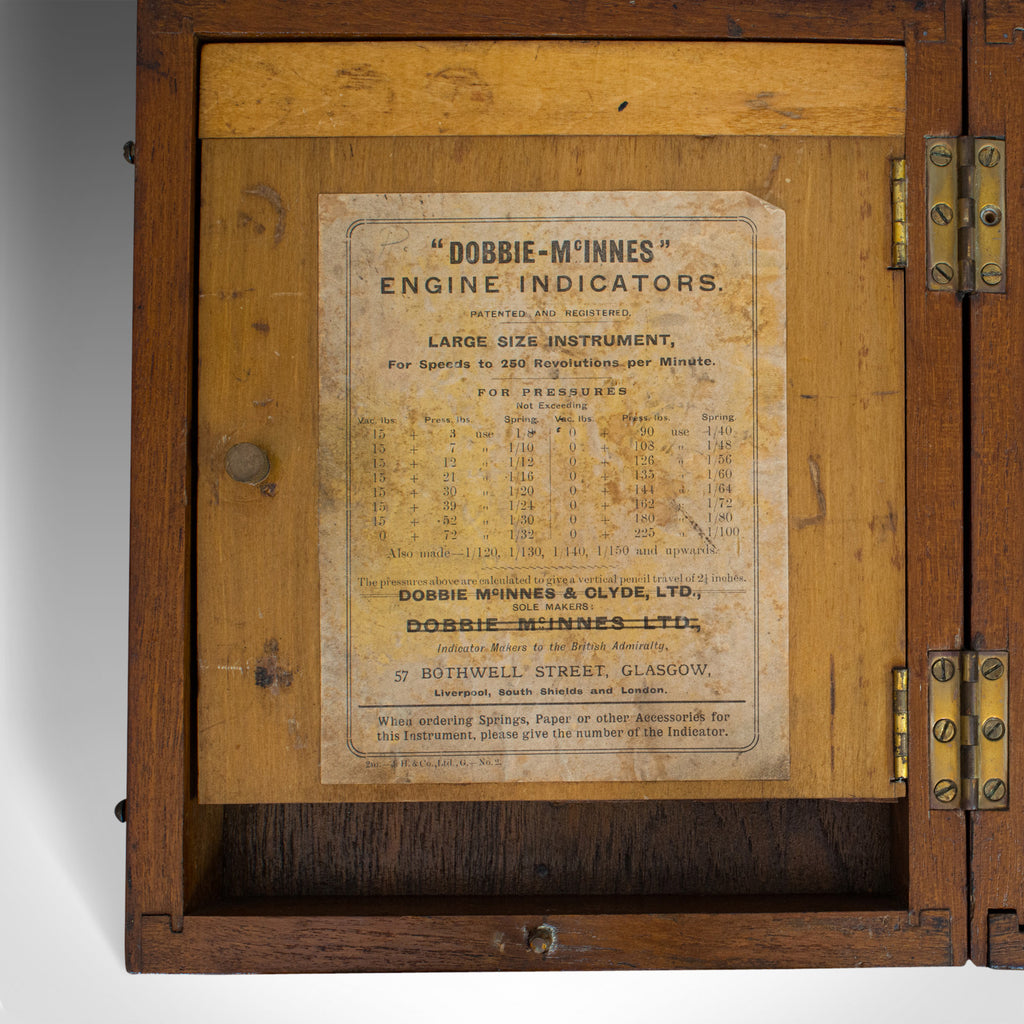 “DOBBIE-McINNES”
ENGINE INDICATORS.
PATENTED AND REGISTERED.
LARGE SIZE INSTRUMENT,
For Speeds to 250 Revolutions per Minute.
FOR PRESSURES
Not Exceeding
Vac. lbs. Press. lbs. Spring. Vac. lbs. Press. lbs. Spring.
15 + 3 use 1/8 0 + 90 use 1/40
15 + 7 „ 1/10 0 + 108 „ 1/48
15 + 12 „ 1/12 0 + 126 „ 1/56
15 + 21 „ 1/16 0 + 135 „ 1/60
15 + 30 „ 1/20 0 + 144 „ 1/64
15 + 39 „ 1/24 0 + 162 „ 1/72
15 + 52 „ 1/30 0 + 180 „ 1/80
0 + 72 „ 1/32 0 + 225 „ 1/100
Also made—1/120, 1/130, 1/140, 1/150 and upwards.
The pressures above are calculated to give a vertical pencil travel of 2¼ inches.
DOBBIE McINNES & CLYDE, LTD.,
SOLE MAKERS:
DOBBIE McINNES LTD.,
Indicator Makers to the British Admiralty,
57 BOTHWELL STREET, GLASGOW,
Liverpool, South Shields and London.
When ordering Springs, Paper or other Accessories for
this Instrument, please give the number of the Indicator.
H. & Co., Ltd., G.—No. 2.